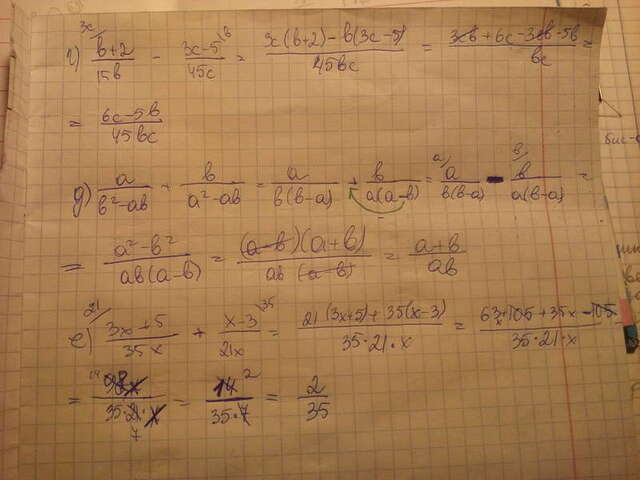 1) (b+2)/15b - (3c-5)/45c = (3c(b+2) - b(3c-5))/45bc = (3cb + 6c - 3cb - 5b)/bc =
= (6c-5b)/45bc
g) a/(b²-ab) + b/(a²-ab) = a/(b(b-a)) + b/(a(a-b)) = a/(b(b-a)) - b/(a(b-a)) =
= (a²-b²)/(ab(a-b)) = ((a-b)(a+b))/(ab(a-b)) = (a+b)/ab
e) (3x+5)/35x + (x-3)/21x = (21(3x+5) + 35(x-3))/(35·21·x) = (63x+105+35x-105)/(35·21·x)
= 98x/(35·21·x) = 14/(35·7) = 2/35